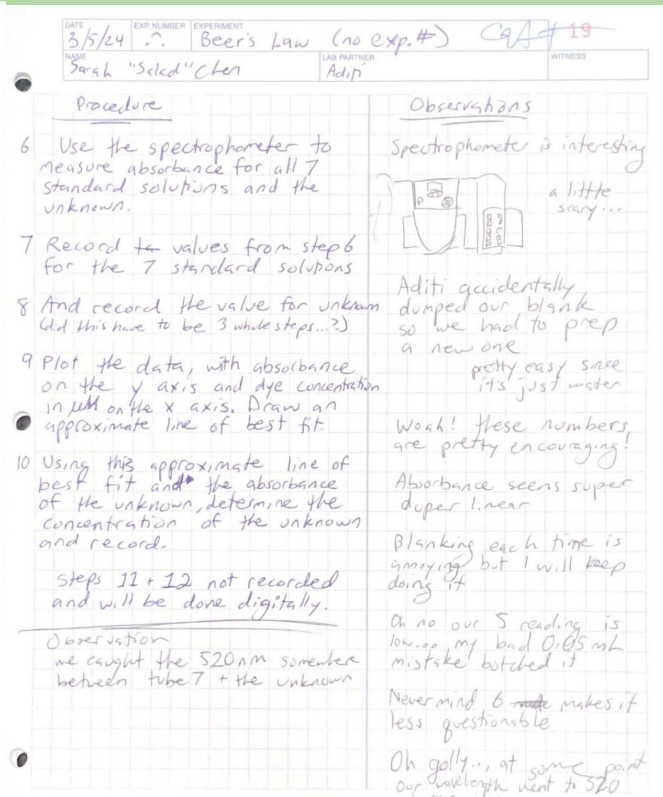 DATE EXP NUMBER EXPERIMENT
3/5/24 Beer's Law (no exp.#) 19
NAME LAB PARTNER WITNESS
Sarah "Salad" Chen Aditi
Procedure
6 Use the spectrophometer to
measure absorbance for all 7
standard solutions and the
unknown.
7 Record values from step 6
for the 7 standard solutions
8 And record the value for unknown
(did this have to be 3 whole steps...?)
9 Plot the data, with absorbance
on the y axis and dye concentration
in µM on the x axis. Draw an
approximate line of best fit.
10 Using this approximate line of
best fit and the absorbance
of the unknown, determine the
concentration of the unknown
and record.
Steps 11 + 12 not recorded
and will be done digitally.
Observation
we caught the 520nm somewhere
between tube 7 + the unknown
Observations
Spectrophometer is interesting
a little
scary...
P
Aditi accidentally
dumped our blank
so we had to prep
a new one
pretty easy since
it's just water
Woah! these numbers
are pretty encouraging!
Absorbance seems super
duper linear
Blanking each time is
annoying but I will keep
doing it
Oh no our 5 reading is
low... my bad 0.05 mL
mistake botched it
Nevermind 6 makes it
less questionable
Oh golly.., at some point
our wavelength went to 520